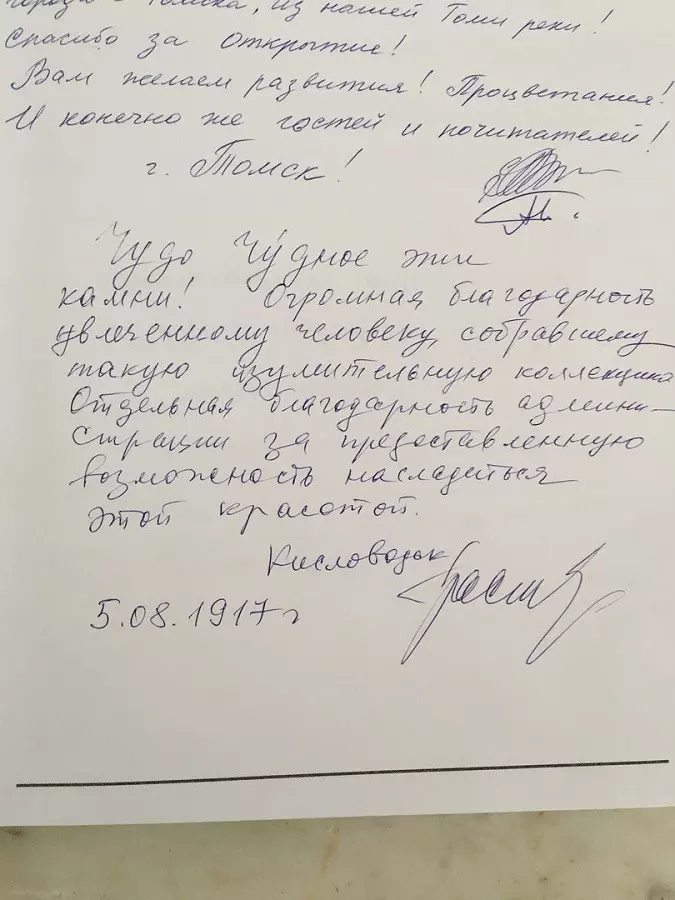 города - Томска, из нашей Томи реки!
Спасибо за открытие!
Вам желаем развития! Процветания!
И конечно же гостей и почитателей!
г. Томск!
Чудо Чу́дное эти
камни! Огромная благодарность
увлеченному человеку, собравшему
такую изумительную коллекцию
Отдельная благодарность админи-
страции за предоставленную
возможность насладиться
этой красотой.
Кисловодск
5.08.1917г